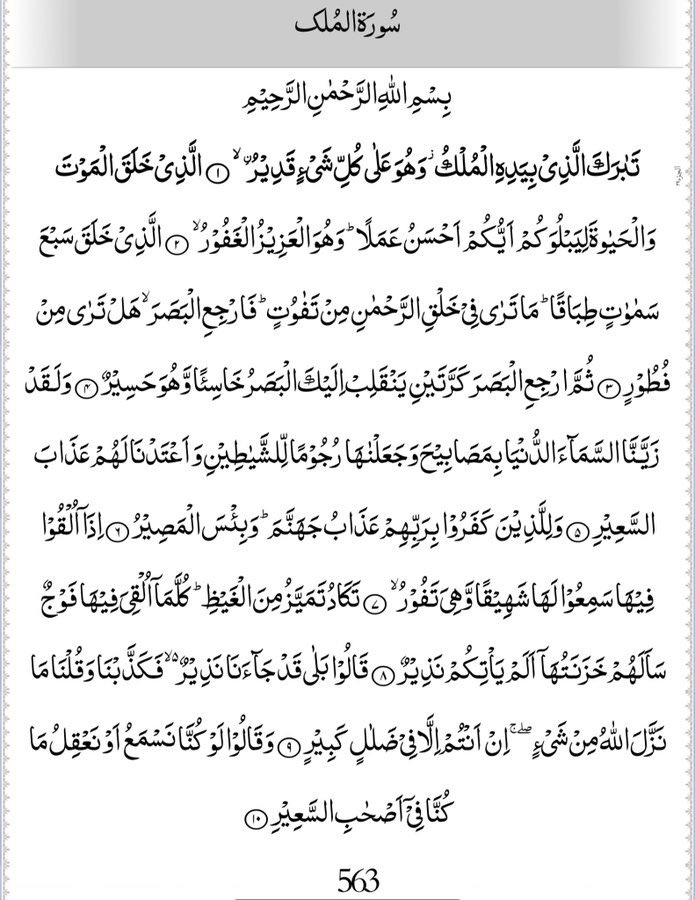 سُورَةُ الْمُلْک
بِسْمِ اللّٰهِ الرَّحْمٰنِ الرَّحِيْمِ
تَبٰرَكَ الَّذِىْ بِيَدِهِ الْمُلْكُ ۡ وَهُوَ عَلٰى كُلِّ شَىْءٍ قَدِيْرُ ۨ ۙ ﴿۱﴾ الَّذِىْ خَلَقَ الْمَوْتَ
وَالْحَيٰوةَ لِيَبْلُوَكُمْ اَيُّكُمْ اَحْسَنُ عَمَلًا ؕ وَهُوَ الْعَزِيْزُ الْغَفُوْرُ ۙ ﴿۲﴾ الَّذِىْ خَلَقَ سَبْعَ
سَمٰوٰتٍ طِبَاقًا ؕ مَا تَرٰى فِىْ خَلْقِ الرَّحْمٰنِ مِنْ تَفٰوُتٍ ؕ فَارْجِعِ الْبَصَرَ ۙ هَلْ تَرٰى مِنْ
فُطُوْرٍ ﴿۳﴾ ثُمَّ ارْجِعِ الْبَصَرَ كَرَّتَيْنِ يَنْقَلِبْ اِلَيْكَ الْبَصَرُ خَاسِئًا وَّهُوَ حَسِيْرٌ ﴿۴﴾ وَلَـقَدْ
زَيَّنَّا السَّمَآءَ الدُّنْيَا بِمَصَابِيْحَ وَجَعَلْنٰهَا رُجُوْمًا لِّلشَّيٰطِيْنِ وَاَعْتَدْنَا لَهُمْ عَذَابَ
السَّعِيْرِ ﴿۵﴾ وَلِلَّذِيْنَ كَفَرُوْا بِرَبِّهِمْ عَذَابُ جَهَنَّمَ ؕ وَبِئْسَ الْمَصِيْرُ ﴿۶﴾ اِذَاۤ اُلْقُوْا
فِيْهَا سَمِعُوْا لَهَا شَهِيْقًا وَّهِىَ تَفُوْرُ ۙ ﴿۷﴾ تَكَادُ تَمَيَّزُ مِنَ الْغَيْظِ ؕ كُلَّمَاۤ اُلْقِىَ فِيْهَا فَوْجٌ
سَاَلَهُمْ خَزَنَتُهَاۤ اَلَمْ يَاْتِكُمْ نَذِيْرٌ ﴿۸﴾ قَالُوْا بَلٰى قَدْ جَآءَنَا نَذِيْرٌ ۙ۬ فَكَذَّبْنَا وَقُلْنَا مَا
نَزَّلَ اللّٰهُ مِنْ شَىْءٍ ۖۚ اِنْ اَنْتُمْ اِلَّا فِىْ ضَلٰلٍ كَبِيْرٍ ﴿۹﴾ وَقَالُوْا لَوْ كُنَّا نَسْمَعُ اَوْ نَعْقِلُ مَا
كُنَّا فِىْۤ اَصْحٰبِ السَّعِيْرِ ﴿۱۰﴾
563